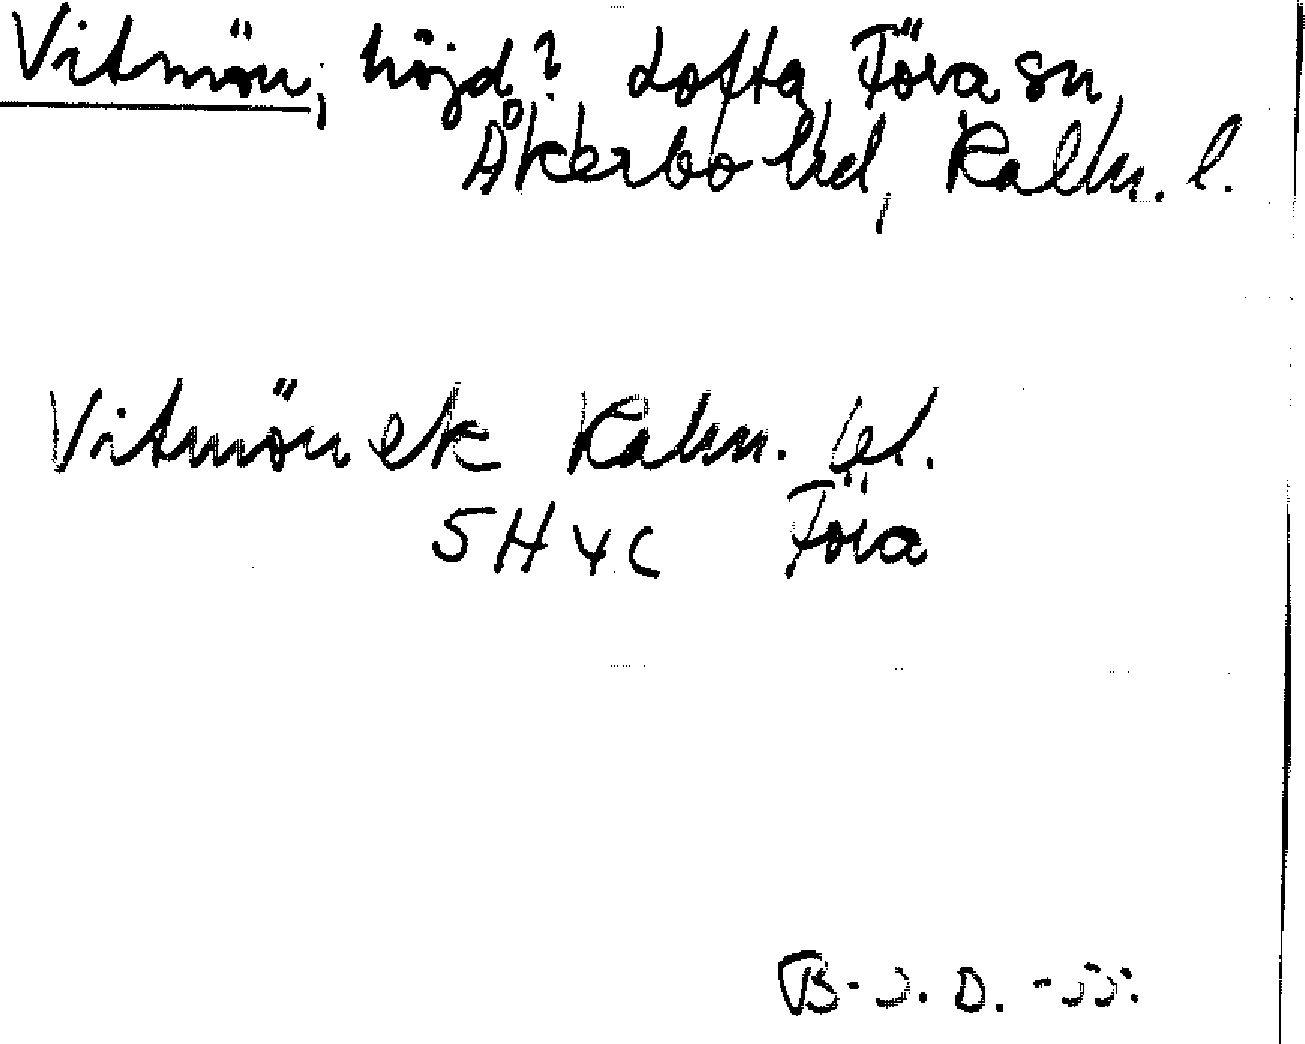 Vitmön, höjd? Lofta, Föra sn,
Åkerbo hd, Kalm. l.
Vitmön ek Kalm. bl.
5H4c Föra
B-J. D. -55.